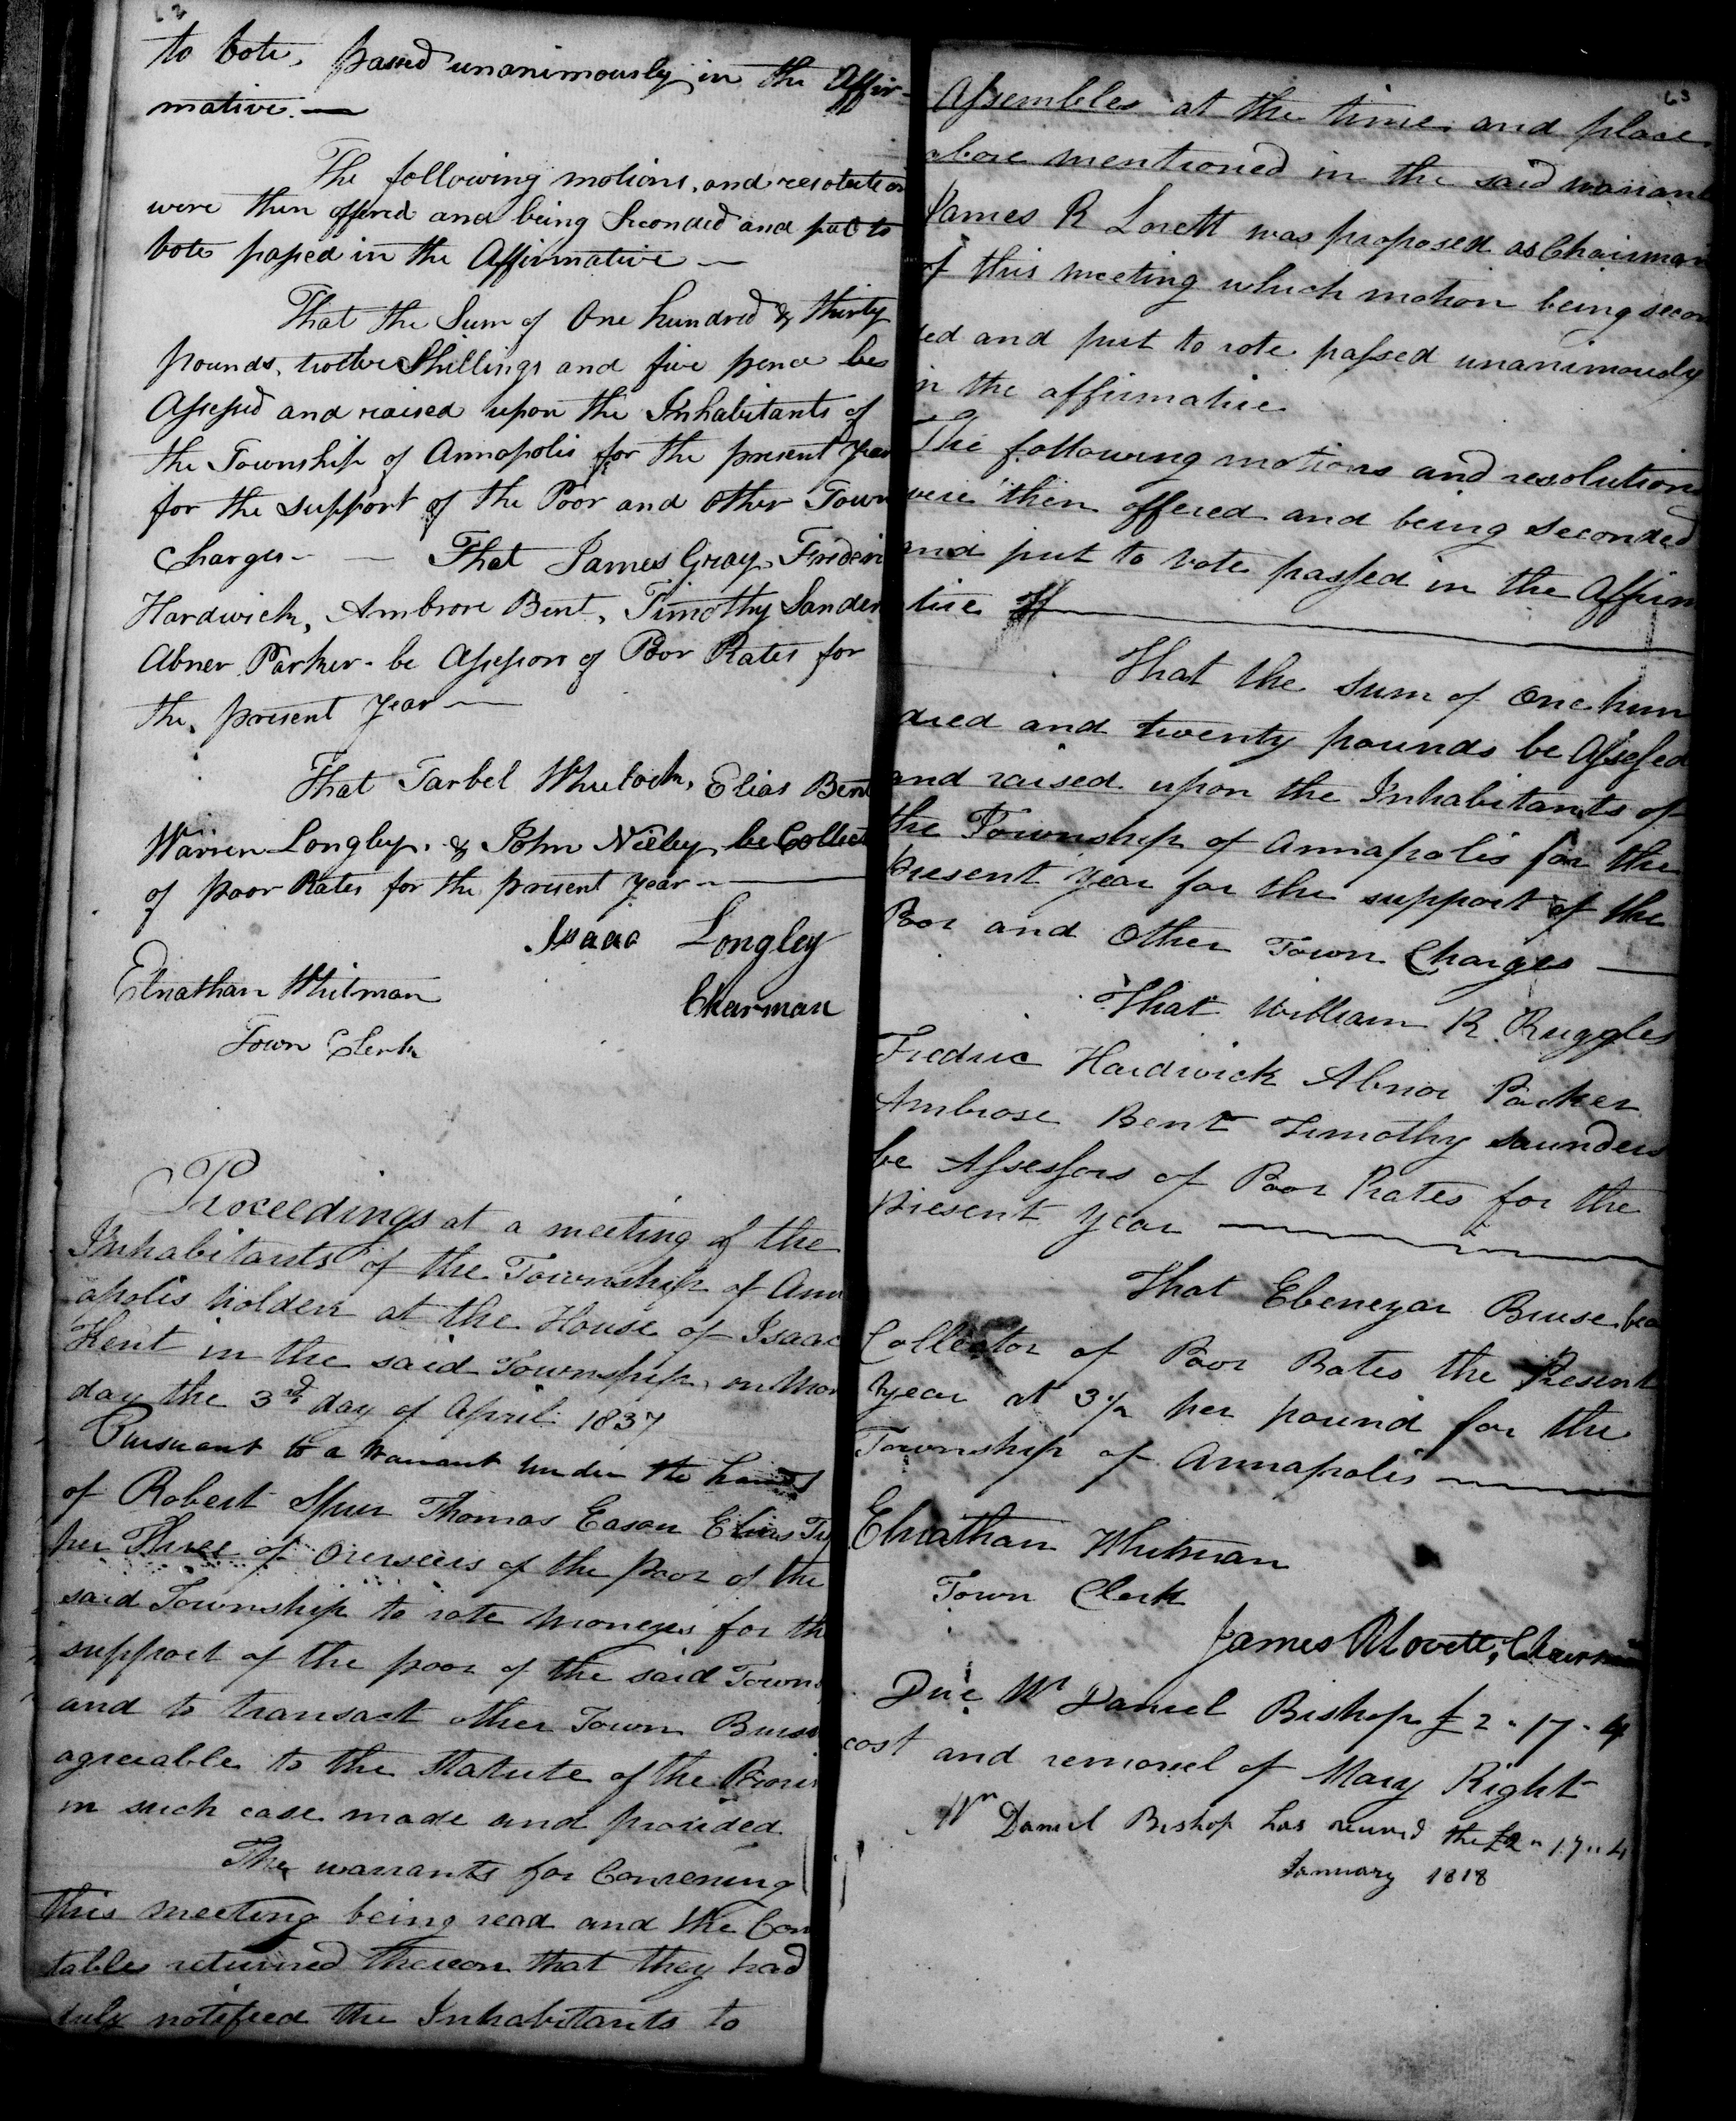 62
to vote, passed unanimously in the Affir-
mative. —
The following motions, and resolution
were then offered and being Seconded and put to
vote passed in the Affirmative —
That the Sum of One hundred & thirty
pounds, twelve Shillings and five pence be
Assessed and raised upon the Inhabitants of
the Township of Annapolis for the present year
for the support of the Poor and other Town
Charges — — That James Gray, Frederi
Hardwick, Ambrose Bent, Timothy Sander
Abner Parker - be Assessors of Poor Rates for
the present year —
That Tarbel Wheelock, Elias Bent
Warren Longley, & John Nieley, be Collect
of poor Rates for the present year —
Isaac Longley
Elnathan Whitman
Chairman
Town Clerk
Proceedings at a meeting of the
Inhabitants of the Township of Ann
apolis holden at the House of Isaac
Kent in the said Township, on Mon
day the 3rd day of April 1837
Pursuant to a warrant under the hands
of Robert Spurr Thomas Eason Elias Tu
per Three of Overseers of the poor of the
said Township to rate moneys for th
support of the poor of the said Towns
and to transact other Town Buisn
agreeable to the Statute of the Provi
in such case made and provided
The warrants for Convening
this meeting being read and the Con
tables returned thereon that they had
duly notifeed the Inhabitants to
63
Assembles at the time and place
above mentioned in the said warrant
James R Lovett was proposed as Chairman
of this meeting which motion being secon
ded and put to vote passed unanimously
in the affirmative
The following motions and resolution
were then offered and being Seconded
and put to vote passed in the Affirm
tive
That the Sum of One hun
dred and twenty pounds be Assessed
and raised upon the Inhabitants of
the Township of Annapolis for the
Present year for the support of the
Poor and Other Town Charges —
That William R Ruggles
Fredric Hardwick Abnor Parker
Ambrose Bent Timothy Saunders
be Assessors of Poor Rates for the
Present year —
That Ebenezar Bruse be a
Collector of Poor Rates the Present
year at 3/2 per pound for the
Township of Annapolis —
Elnathan Whitman
Town Clerk
James R Lovett, Chairman
Due Mr Daniel Bishop £2 - 17 - 4
cost and removel of Mary Right
Mr Daniel Bishop has received the £2 " 17 " 4
January 1818